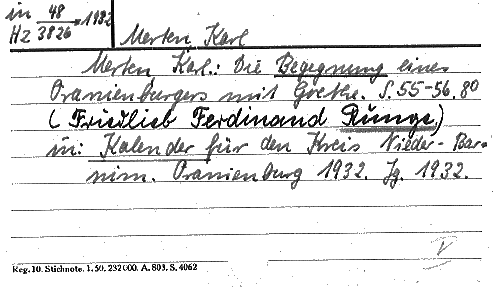 in 48
Hz 3826 × 1932
Merten, Karl
Merten, Karl.: Die Begegnung eines
Oranienburgers mit Goethe. S. 55-56. 8°
(Friedlieb Ferdinand Runge,)
in: Kalender für den Kreis Nieder-Bar=
nim. Oranienburg 1932. Jg. 1932.
V
Reg. 10. Stichnote. 1. 50. 232000. A. 803. S. 4062